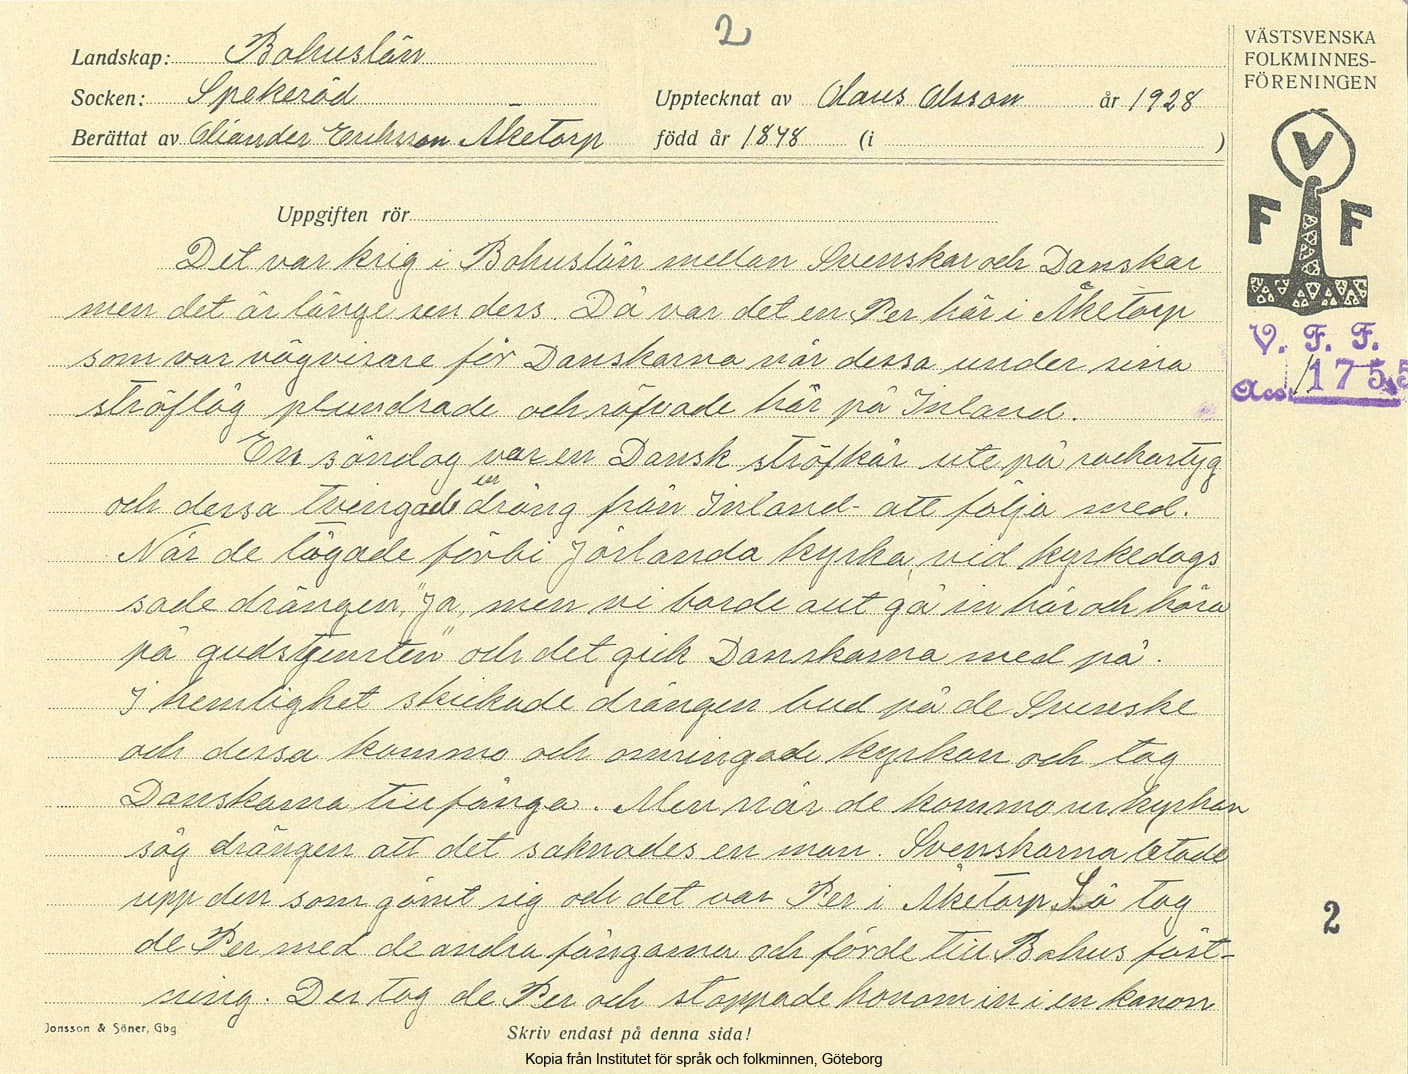 2
Landskap: Bohuslän
Socken: Spekeröd
Upptecknat av Claus Olsson år 1928
Berättat av Oliander Eriksson Åketorp
född år 1848 (i )
VÄSTSVENSKA
FOLKMINNES-
FÖRENINGEN
V
F F
V. F. F.
Acc. 1755
Uppgiften rör
Det var krig i Bohuslän mellan Svenskar och Danskar
men det är länge sen dess. Då var det en Per här i Åketorp
som var vägvisare för Danskarna när dessa under sina
ströftåg plundrade och röfvade här på Inland.
En söndag var en Dansk ströfkår ute på rackartyg
och dessa tvingade en dräng från Inland att följa med.
När de tågade förbi Jörlanda kyrka, vid kyrkedags
sade drängen, "Ja, men vi borde allt gå in här och höra
på gudstjensten" och det gick Danskarna med på.
I hemlighet skickade drängen bud på de Svenske
och dessa kommo och omringade kyrkan och tog
Danskarna tillfånga. Men när de kommo ur kyrkan
såg drängen att det saknades en man. Svenskarna letade
upp den som gömt sig och det var Per i Åketorp Så tog
de Per med de andra fångarna och förde till Bohus fäst-
ning. Der tog de Per och stoppade honom in i en kanon
2
Jonsson & Söner, Gbg
Skriv endast på denna sida!
Kopia från Institutet för språk och folkminnen, Göteborg